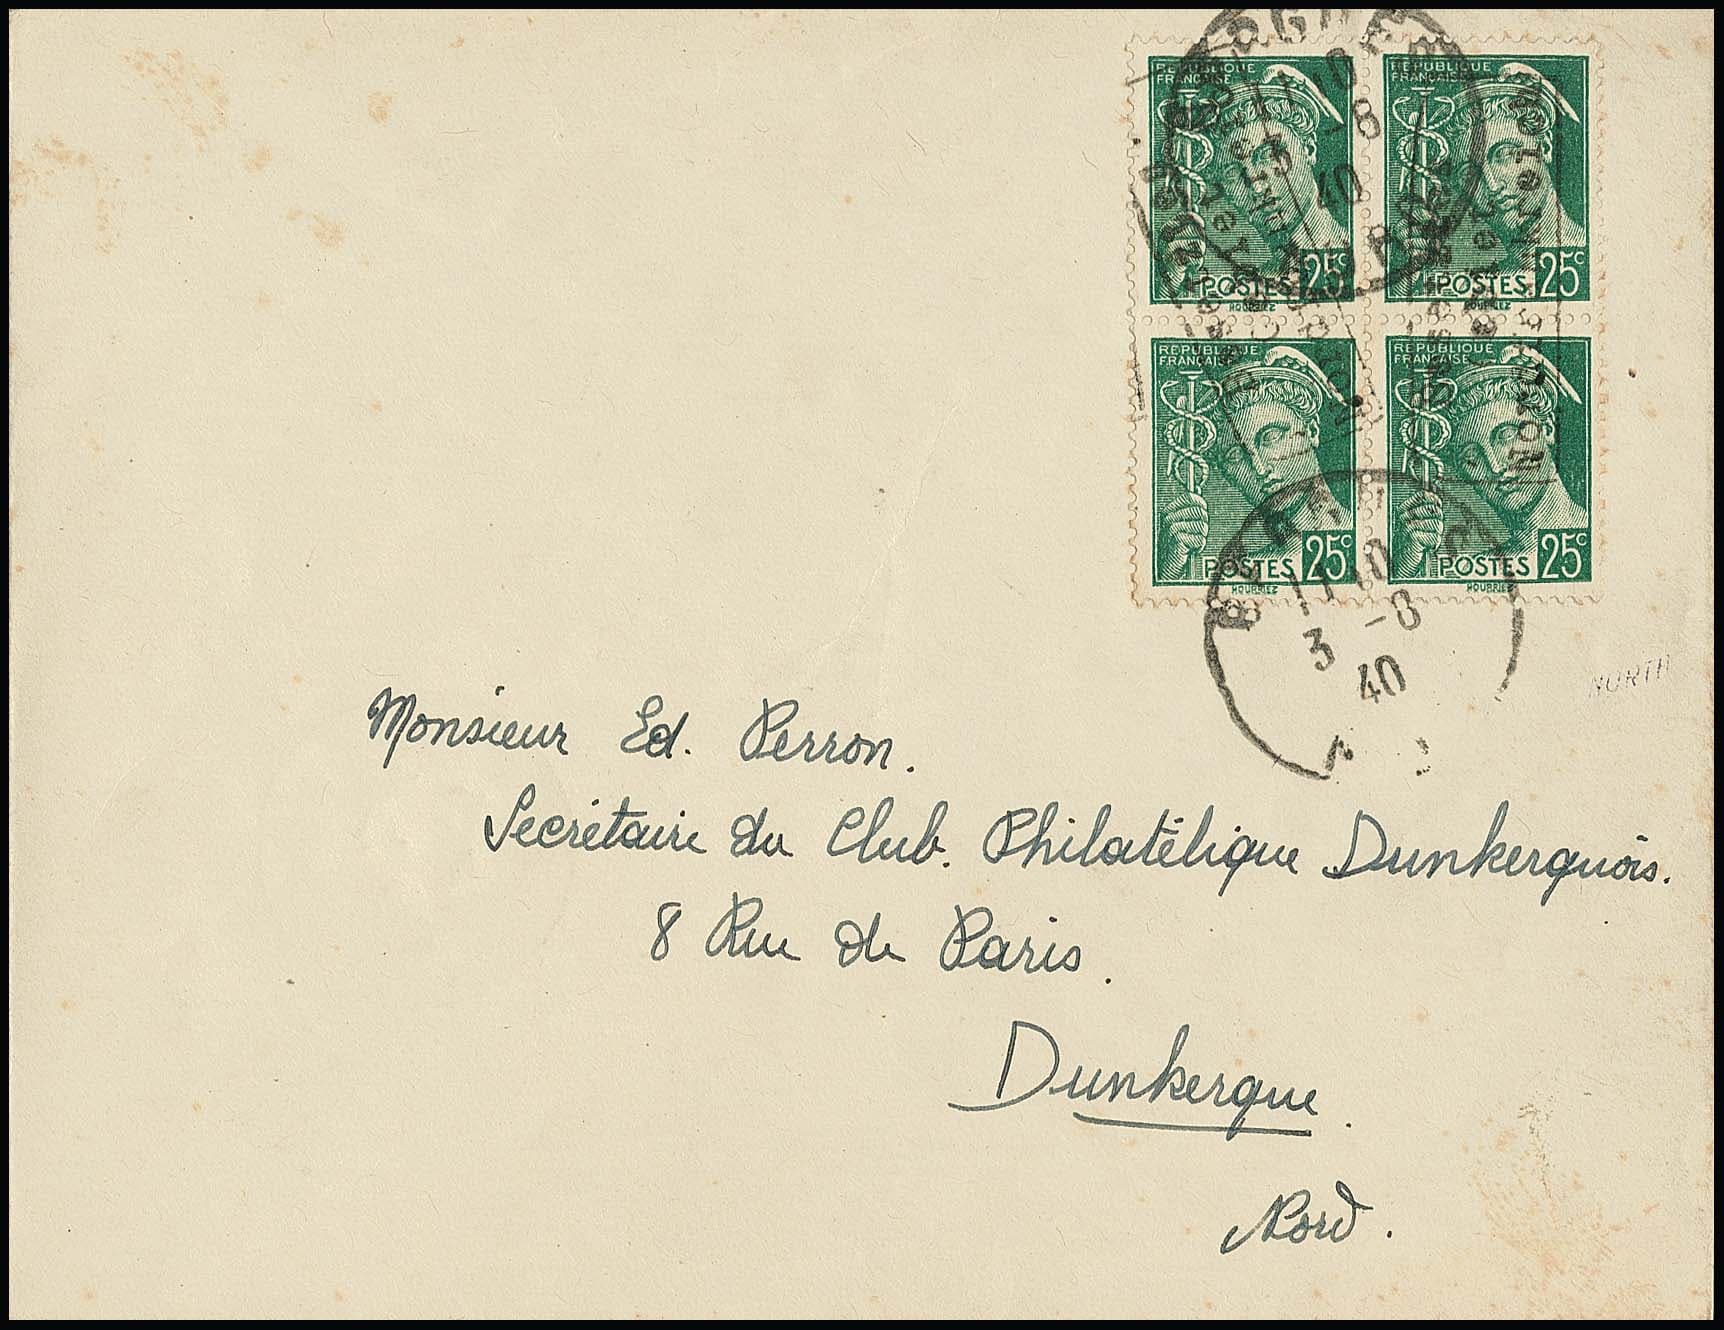 RÉPUBLIQUE FRANÇAISE
POSTES 25c
HOURRIEZ
RÉPUBLIQUE FRANÇAISE
POSTES 25c
HOURRIEZ
RÉPUBLIQUE FRANÇAISE
POSTES 25c
HOURRIEZ
RÉPUBLIQUE FRANÇAISE
POSTES 25c
HOURRIEZ
10
-8
40
3 -8
40
NORTH
Monsieur Ed. Perron.
Secrétaire du Club. Philatélique Dunkerquois.
8 Rue de Paris.
Dunkerque.
Nord.